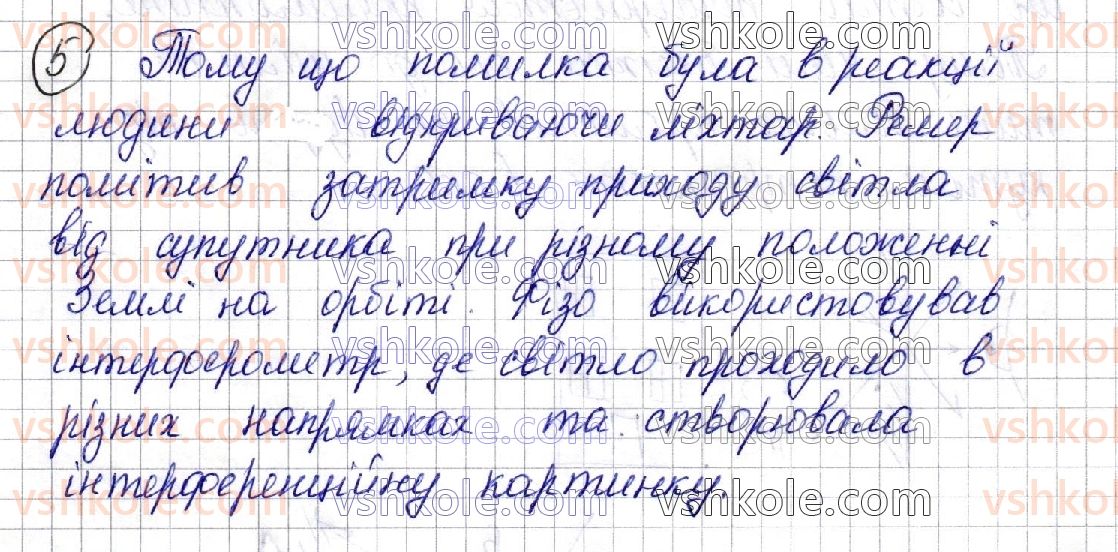 5 Тому що помилка була в реакції
людини відкриваючи ліхтар. Ремер
помітив затримку приходу світла
від супутника при різному положенні
Землі на орбіті. Фізо використовував
інтерферометр, де світло проходило в
різних напрямках та створювала
інтерференційну картинку.